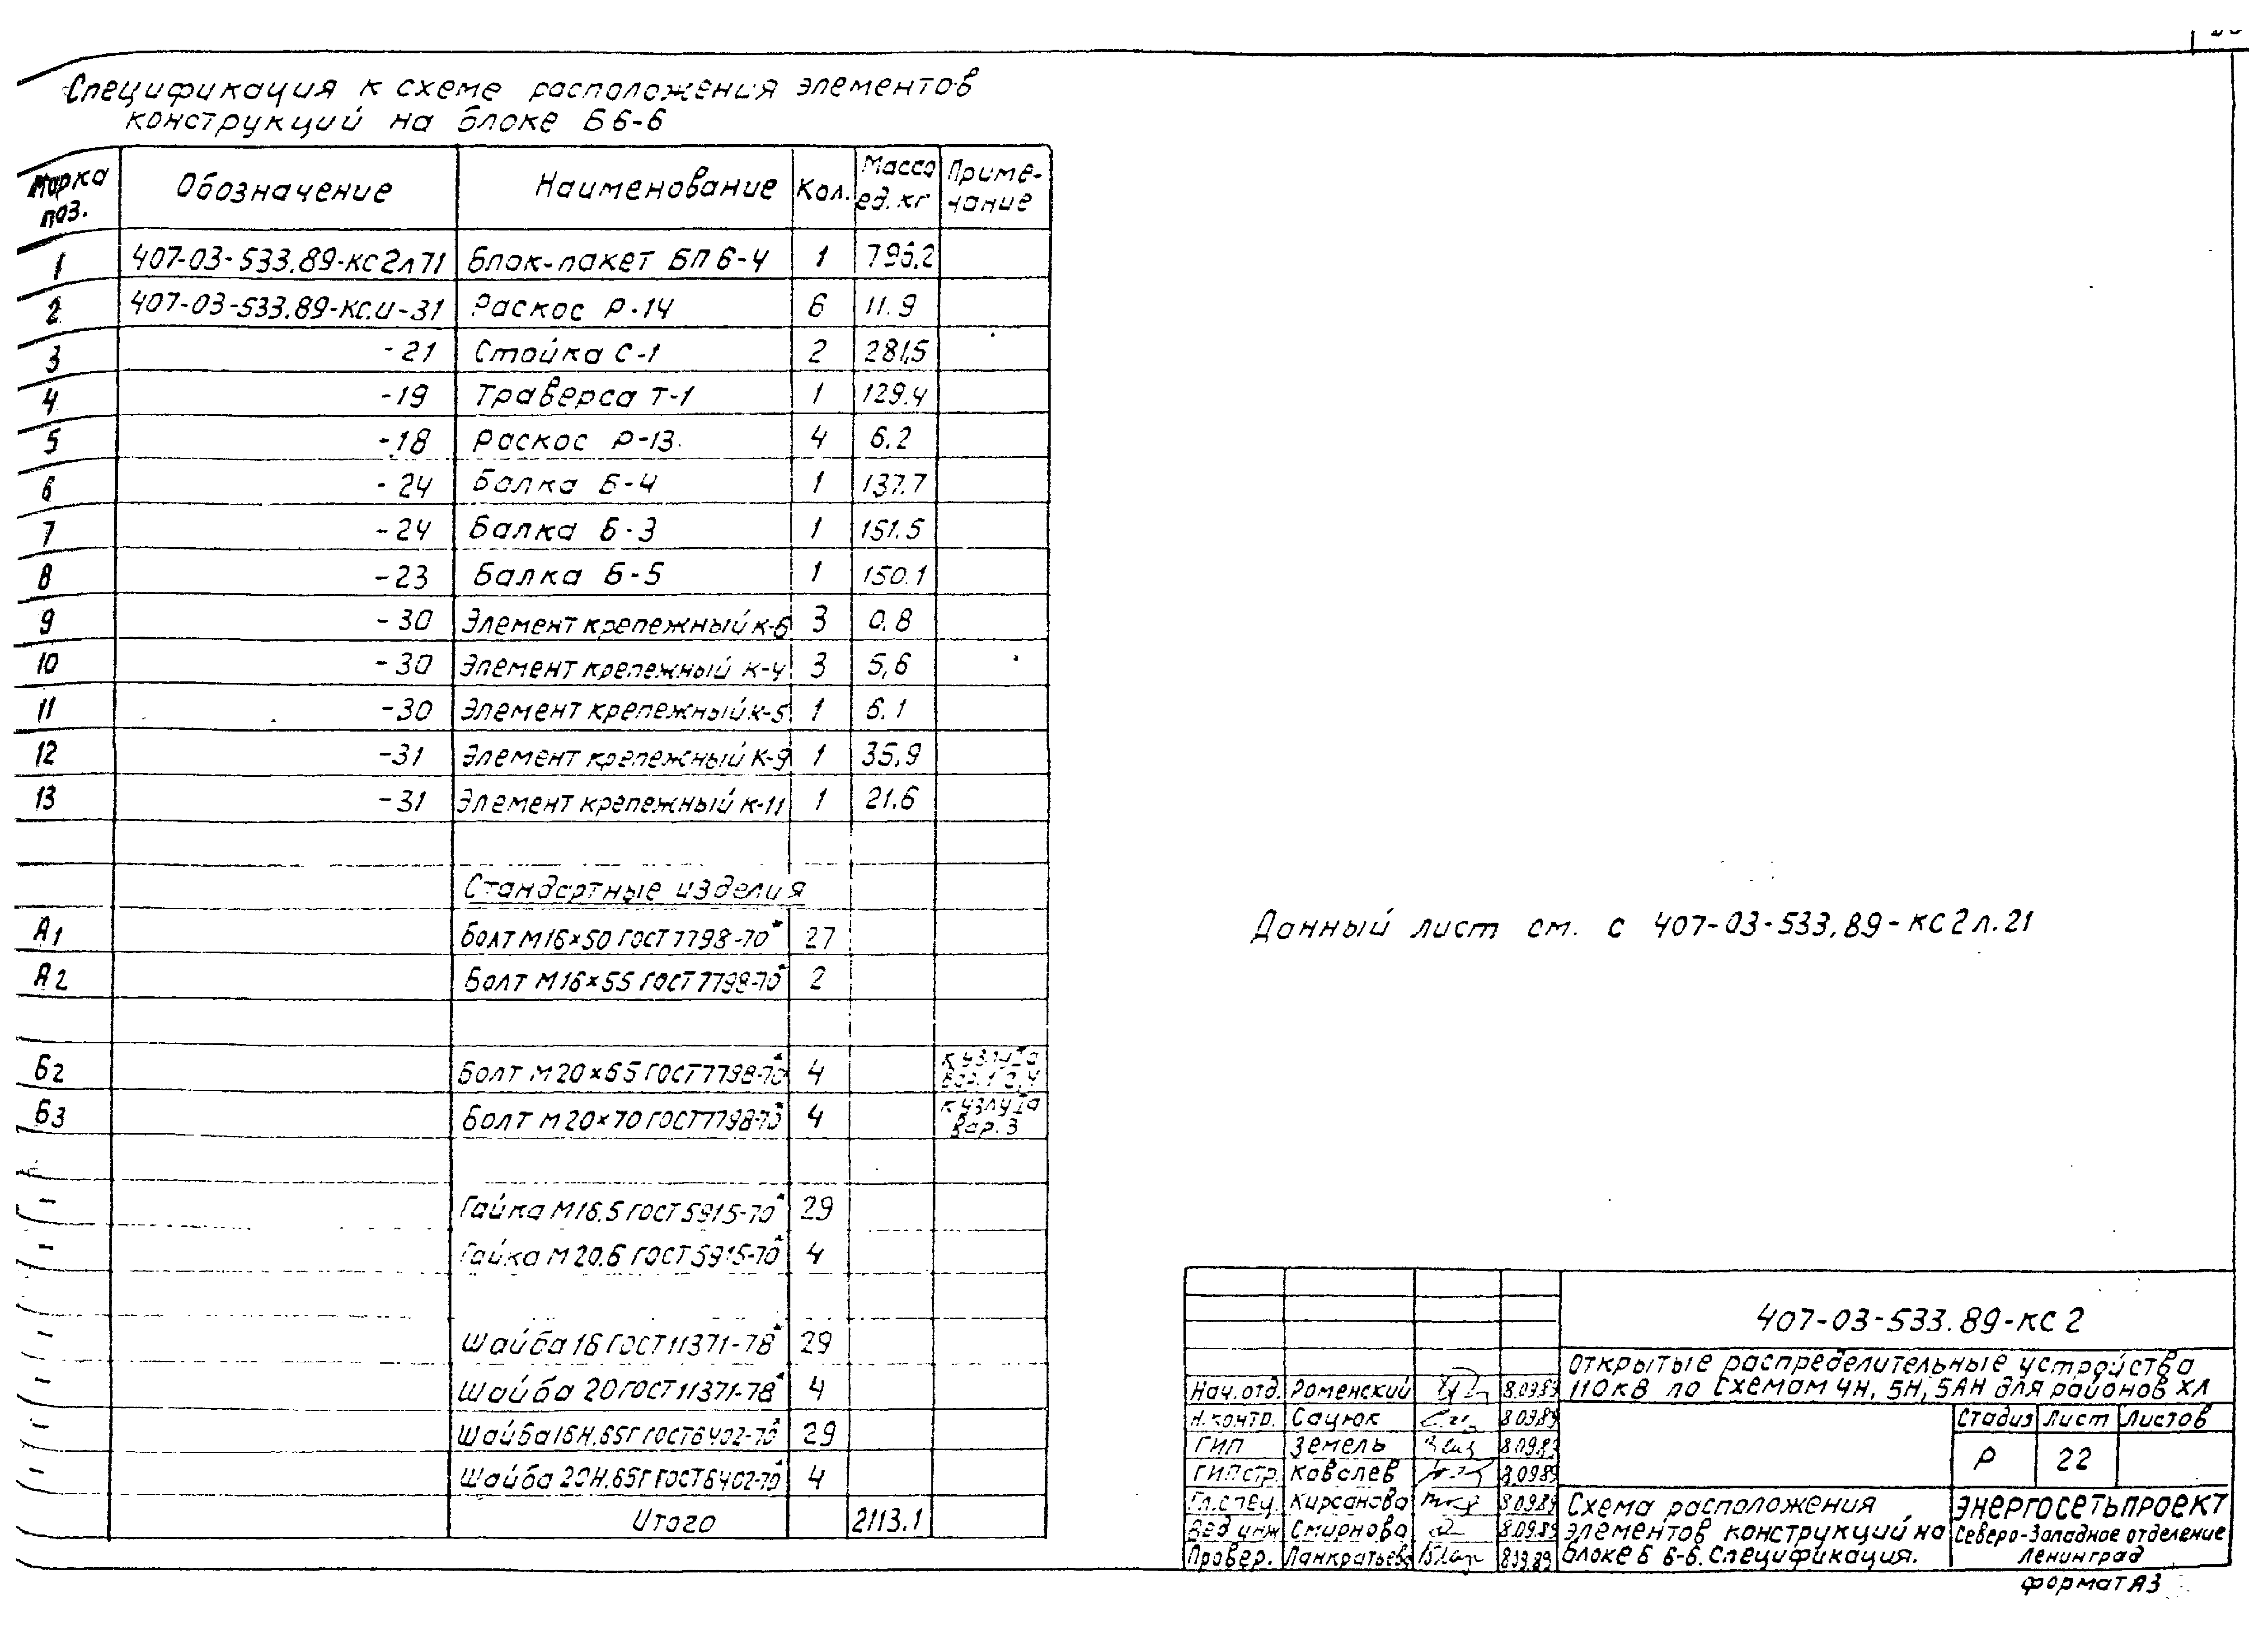 Спецификация к схеме расположения элементов
конструкций на блоке Б6-6
Марка поз. Обозначение Наименование Кол. Масса ед. кг Приме-чание
1 407-03-533.89-КС2л71 Блок-пакет БП6-4 1 796.2
2 407-03-533.89-КС.И-31 Раскос Р-14 6 11.9
3 -21 Стойка С-1 2 281,5
4 -19 Траверса Т-1 1 129.4
5 -18 Раскос Р-13 4 6.2
6 -24 Балка Б-4 1 137.7
7 -24 Балка Б-3 1 151.5
8 -23 Балка Б-5 1 150.1
9 -30 Элемент крепежный К-6 3 0.8
10 -30 Элемент крепежный К-4 3 5,6
11 -30 Элемент крепежный К-5 1 6.1
12 -31 Элемент крепежный К-9 1 35,9
13 -31 Элемент крепежный К-11 1 21.6
Стандартные изделия
А1 Болт М16×50 ГОСТ 7798-70* 27
А2 Болт М16×55 ГОСТ 7798-70* 2
Б2 Болт М20×65 ГОСТ 7798-70* 4 к узлу
Б3 Болт М20×70 ГОСТ 7798-70* 4 к узлу Вар. 3
- Гайка М16.5 ГОСТ 5915-70* 29
- Гайка М20.6 ГОСТ 5915-70* 4
- Шайба 16 ГОСТ 11371-78* 29
- Шайба 20 ГОСТ 11371-78* 4
- Шайба 16Н.65Г ГОСТ 6402-70* 29
- Шайба 20Н.65Г ГОСТ 6402-70* 4
Итого 2113.1
Данный лист см. с 407-03-533.89-КС2л.21
407-03-533.89-КС2
Открытые распределительные устройства
110кВ по схемам 4Н, 5Н, 5АН для районов ХЛ
Нач.отд. Роменский 8.09.89
Н.контр. Сацюк 8.09.89
ГИП Земель 8.09.89
ГИПстр. Ковалев 8.09.89
Гл.спец. Кирсанова 8.09.89
Вед инж Смирнова 8.09.89
Провер. Панкратьева 8.09.89
Стадия Лист Листов
Р 22
Схема расположения
элементов конструкций на
блоке Б 6-6. Спецификация.
ЭНЕРГОСЕТЬПРОЕКТ
Северо-Западное отделение
Ленинград
формат А3